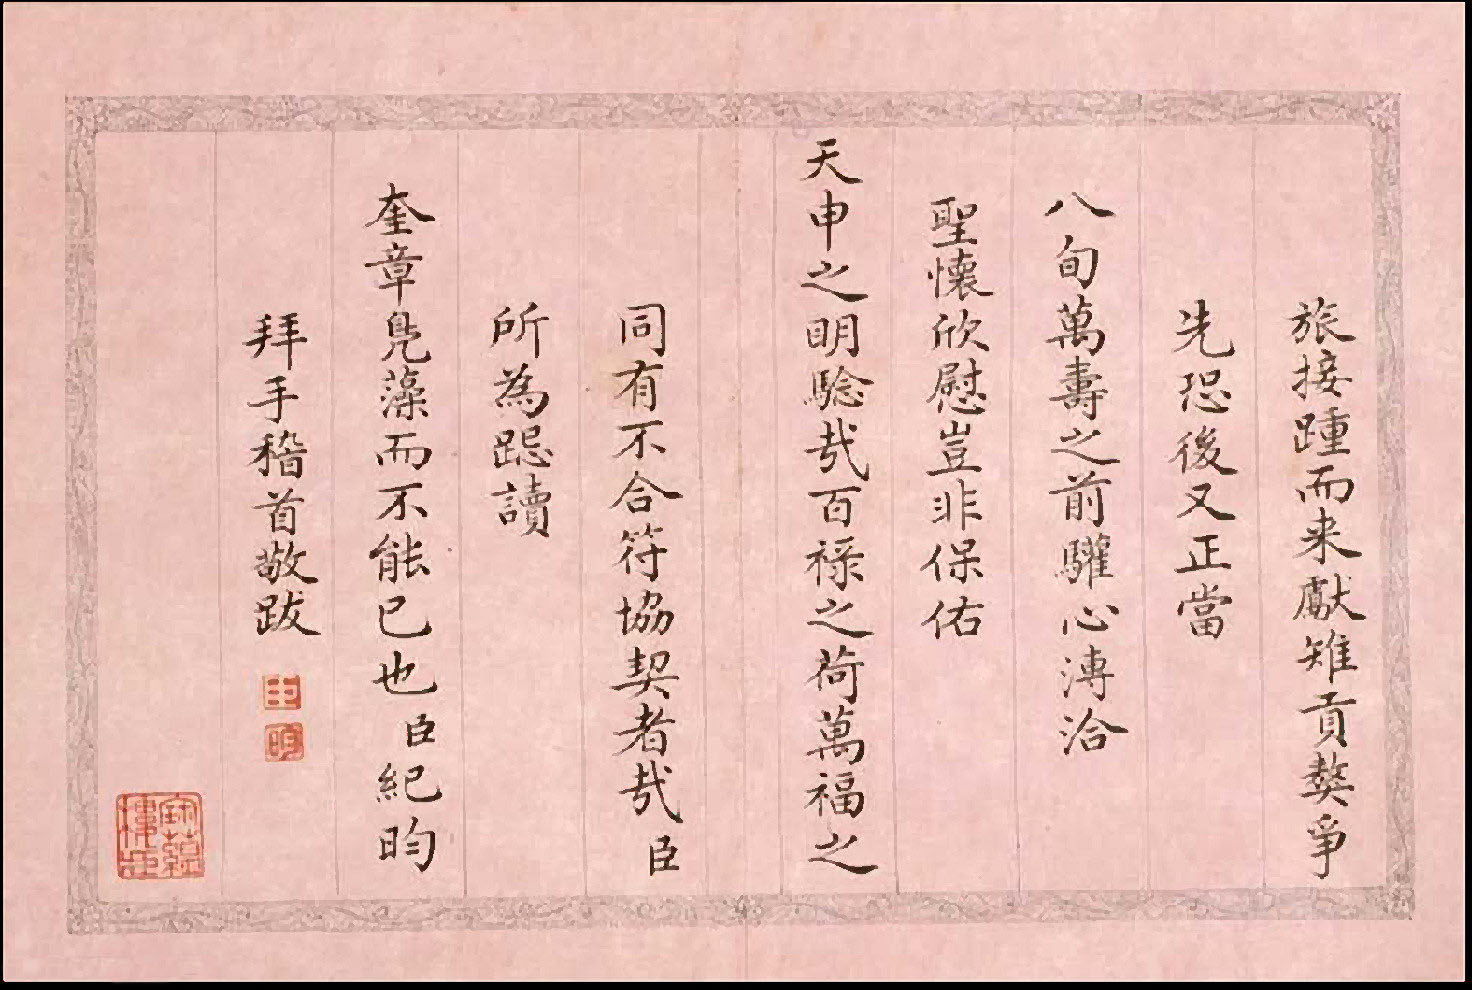 旅接踵而来獻雉貢獒爭
先恐後又正當
八旬萬壽之前驩心溥洽
聖懷欣慰豈非保佑
天申之明騐哉百祿之荷萬福之
同有不合符協契者哉臣
所為跽讀
奎章鳧藻而不能已也臣紀昀
拜手稽首敬跋